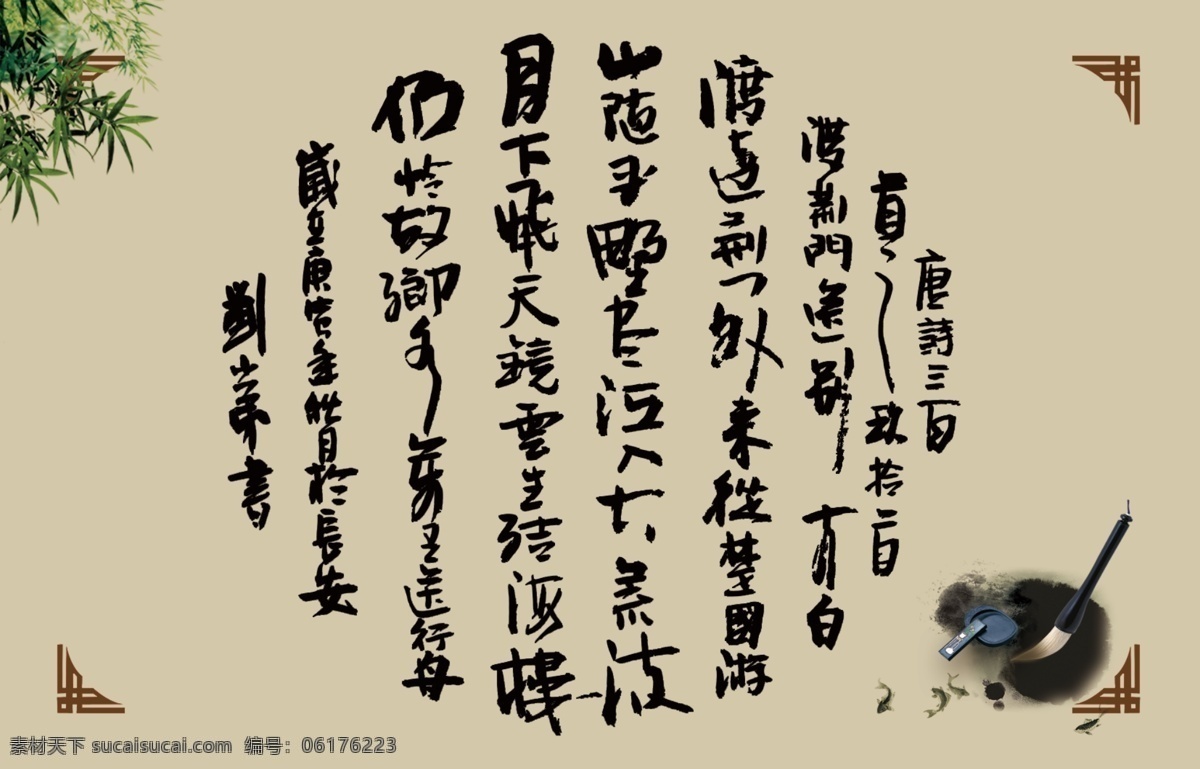 唐詩三百
首之玖拾
渡荆門送别 李白
渡遠荆门外來從楚國游
山随平野尽江入大荒流
月下飛天鏡雲生結海樓
仍怜故鄉水萬里送行舟
歲在庚寅年秋月於長安
劉書
素材天下 sucaisucai.com 编号：06176223